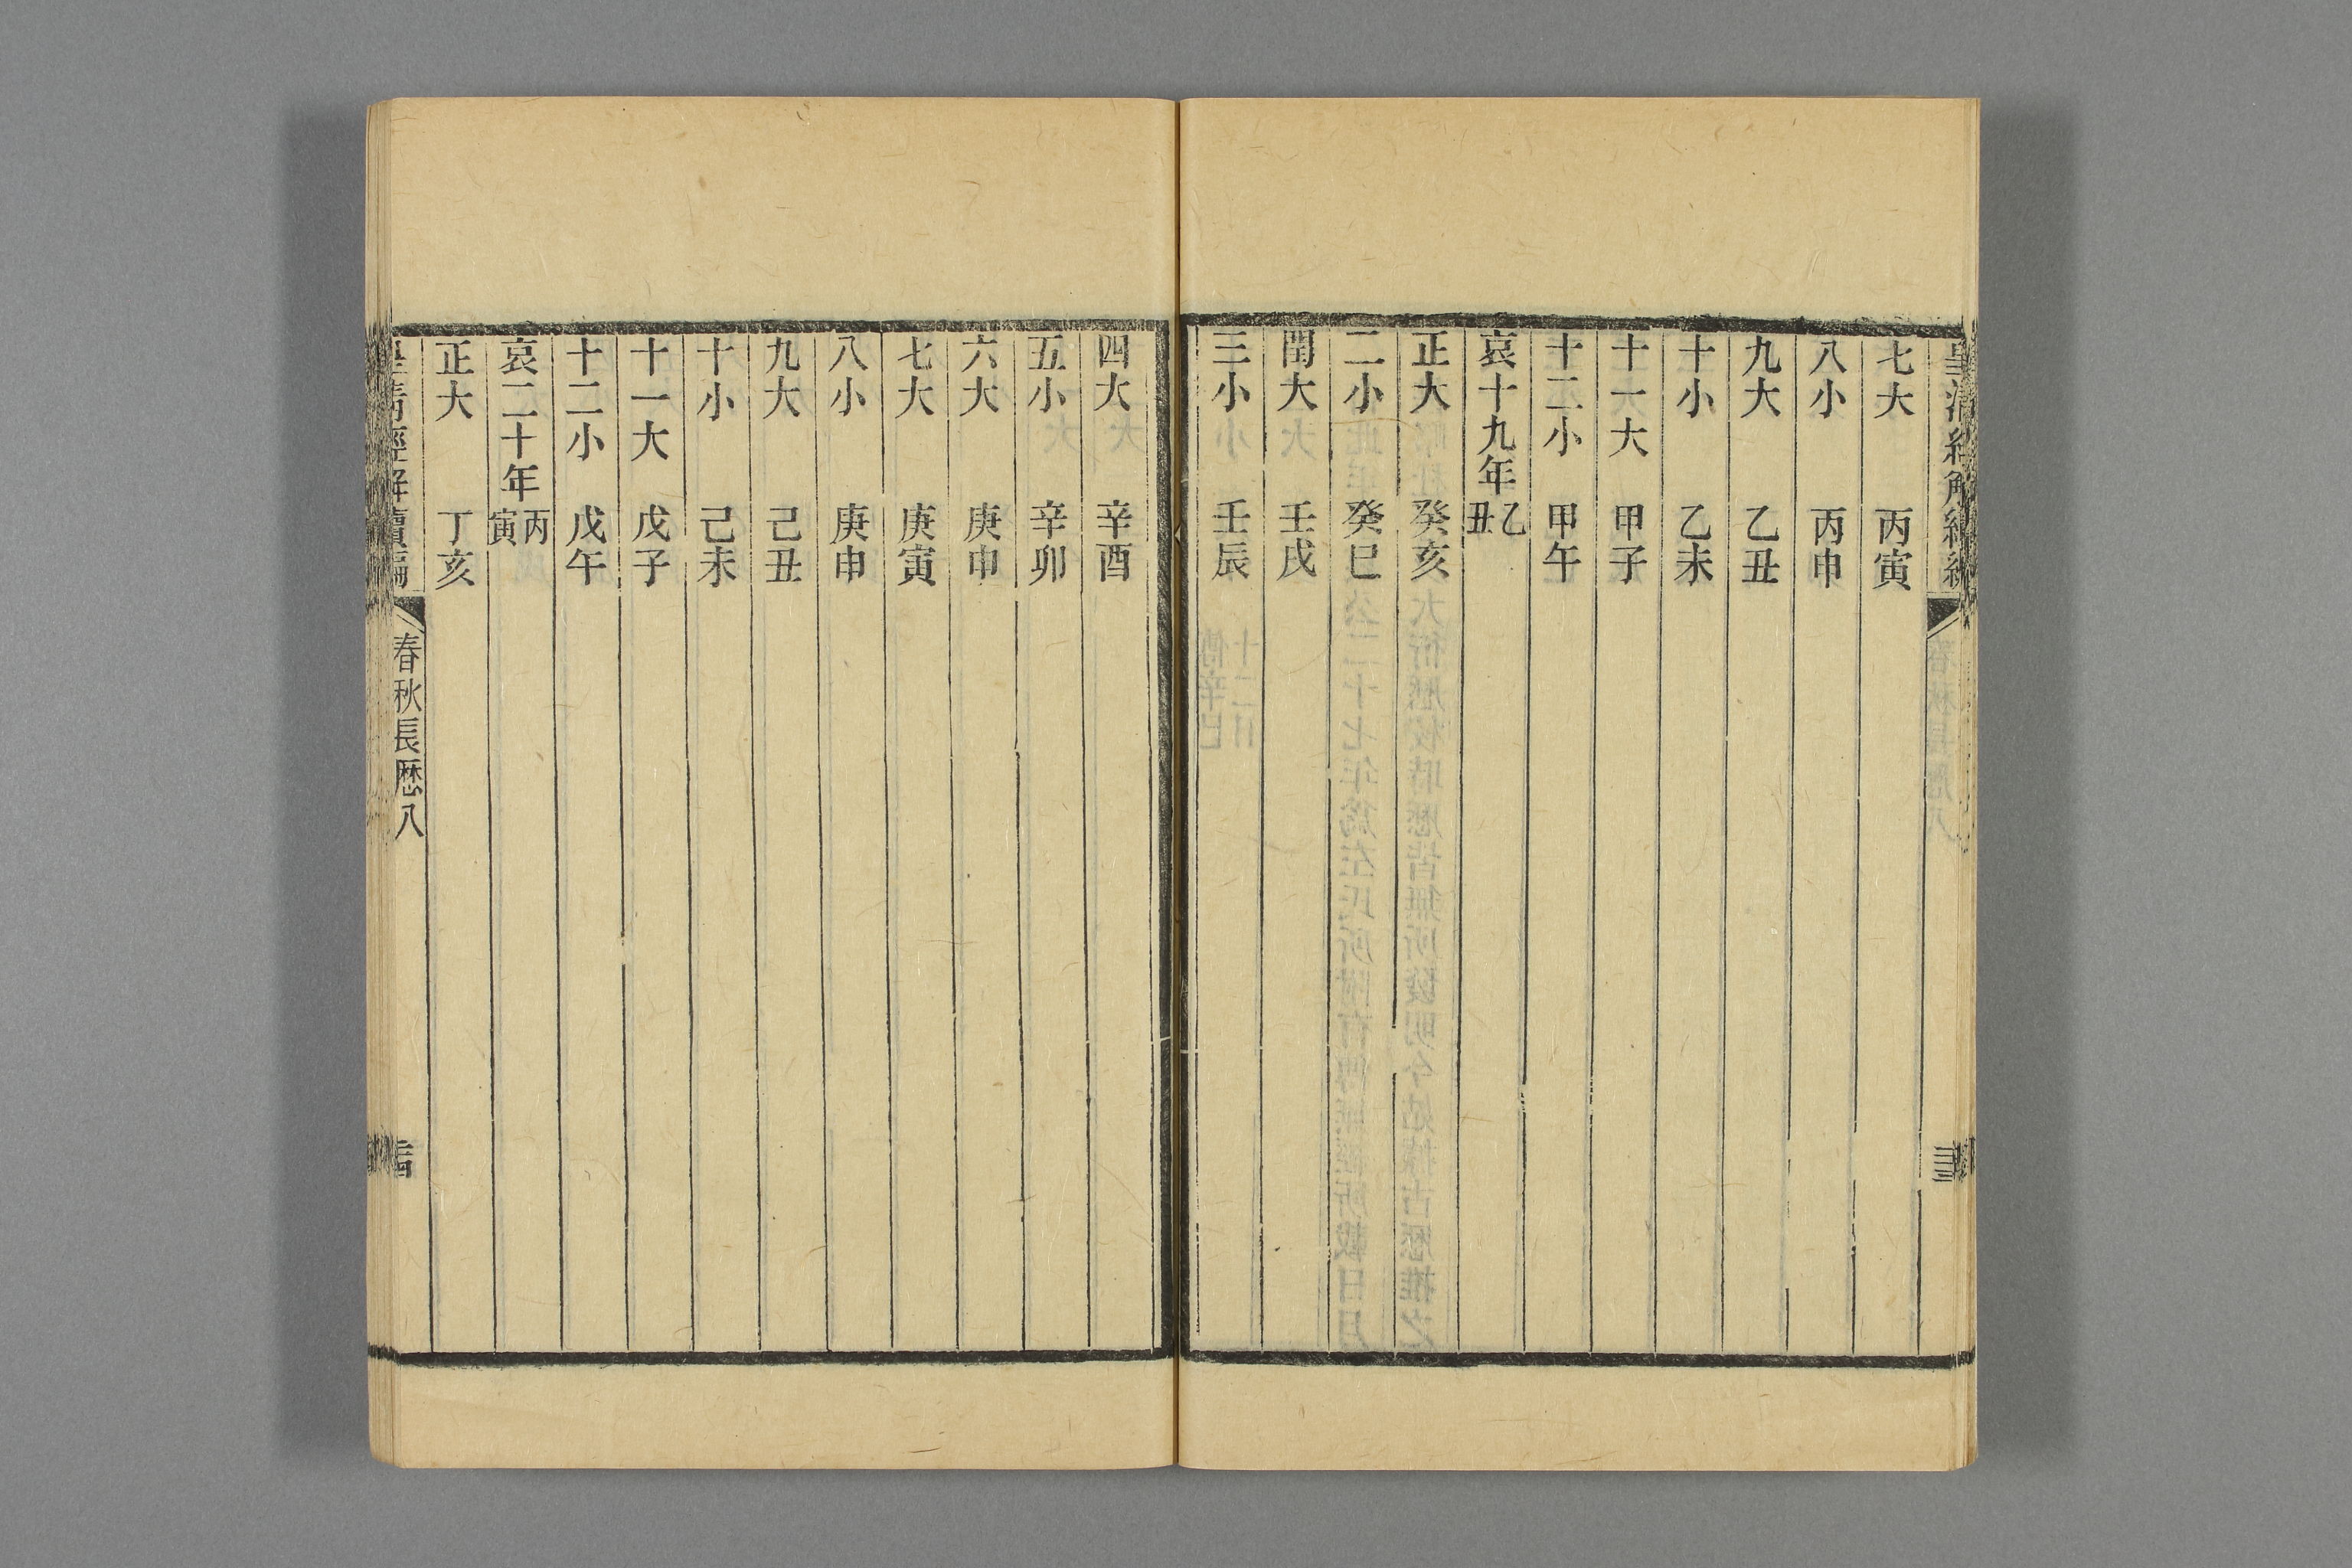 七大 丙寅
八小 丙申
九大 乙丑
十小 乙未
十一大 甲子
十二小 甲午
哀十九年 乙丑
正大 癸亥
二小 癸巳
閏大 壬戌
三小 壬辰
四大 辛酉
五小 辛卯
六大 庚申
七大 庚寅
八小 庚申
九大 己丑
十小 己未
十一大 戊子
十二小 戊午
哀二十年 丙寅
正大 丁亥
皇清經解續編 春秋長歷八